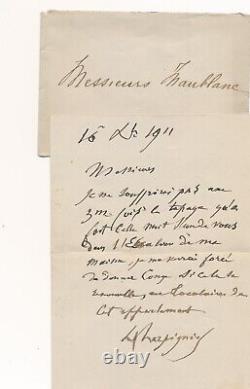 Messieurs Vaublanc
16 Dbre 1911
Messieurs
Je ne souffrirai pas une
3me fois le tapage qu'a
fait cette nuit l'un de vous
dans l'Escalier de ma
maison, je me verrai forcé
de donner Congé si cela se
renouvelle, au locataire de
cet appartement
H Harpignies